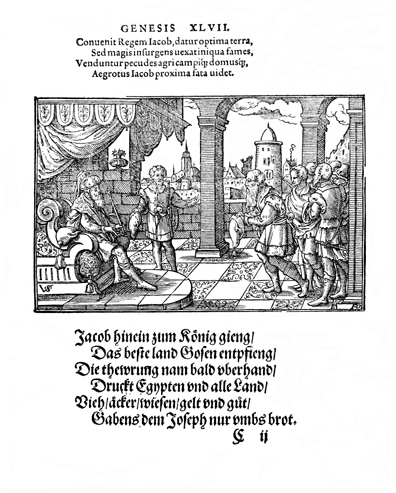 GENESIS XLVII.
Convenit Regem Iacob, datur optima terra,
Sed magis insurgens uexat iniqua fames,
Venduntur pecudes agri campiq́ꝫ domusq́ꝫ,
Aegrotus Iacob proxima fata uidet.
Jacob hinein zum König gieng/
Das beste land Gosen entpfieng/
Die thewrung nam bald vberhand/
Druckt Egypten vnd alle Land/
Vieh/äcker/wiesen/gelt vnd gůt/
Gabens dem Joseph nur vmbs brot.
C ij